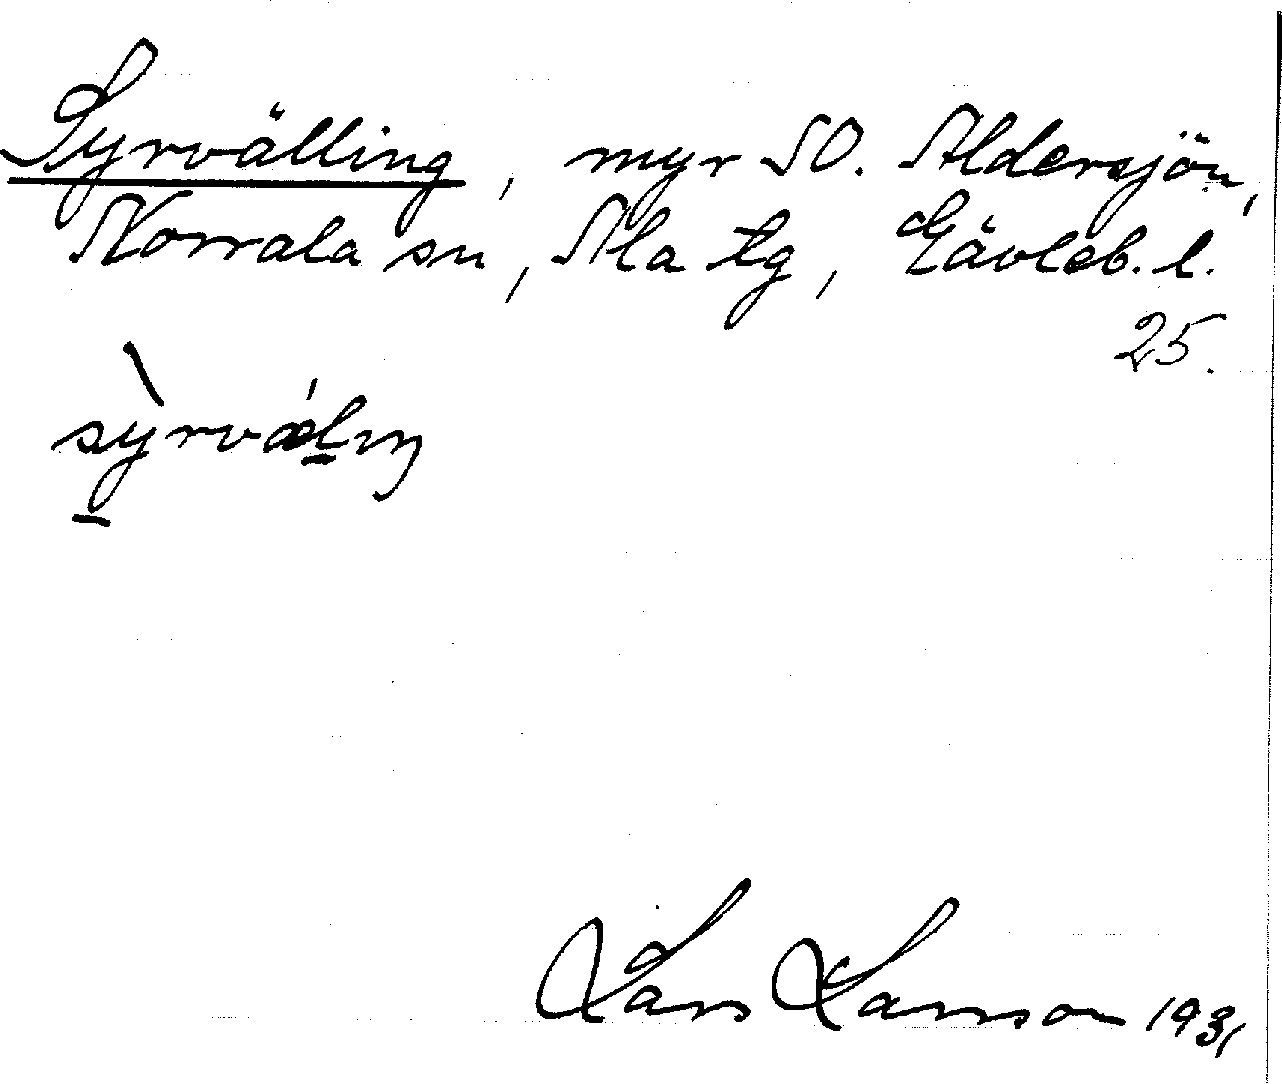 Syrvälling, myr SO. Aldersjön,
Norrala sn, Ala tg, Gävleb. l.
25.
sỳrvǽlıŋ
Lars Larsson 1931